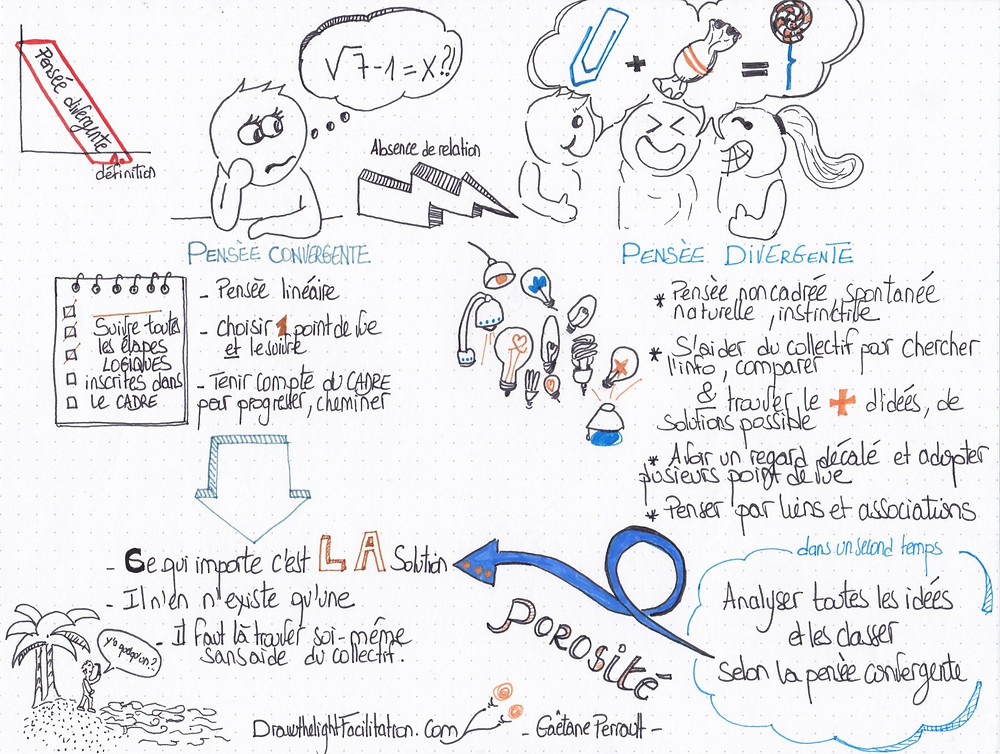 Pensée divergente
définition
√7-1=x?!
+
=
Absence de relation
PENSÈE CONVERGENTE
Suivre toutes
les étapes
LOGIQUES
inscrites dans
LE CADRE
- Pensée linéaire
- choisir 1 point de vue
et le suivre
- Tenir compte du CADRE
pour progresser, cheminer
- Ce qui importe c'est LA Solution
- Il n'en n'existe qu'une
- Il faut là trouver soi-même
sans aide du collectif.
PENSÈE DIVERGENTE
* Pensée non cadrée, spontanée
naturelle, instinctive
* S'aider du collectif pour chercher
l'info, comparer
& trouver le + d'idées, de
solutions possible
* Avoir un regard décalé et adopter
plusieurs point de vue
* Penser par liens et associations
dans un second temps
Analyser toutes les idées
et les classer
selon la pensée convergente
Porosité
DrawthelightFacilitation.Com
- Gaëtane Perrault -